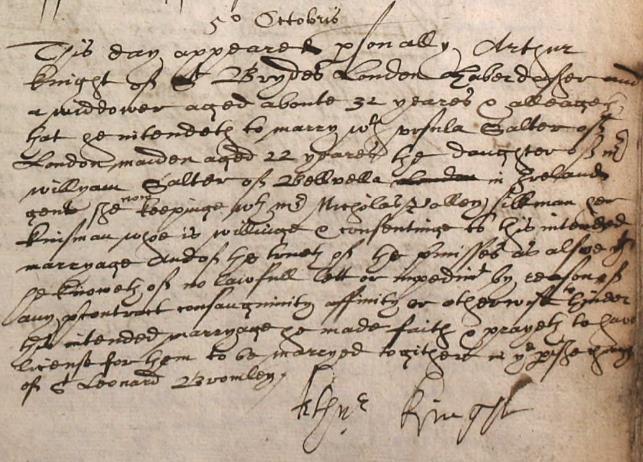 5o Octobris
This day appeared psonally Arthur
Knight of St Brydes London Haberdasher and
a widdower aged aboute 32 yeares & alleageth
that he intendeth to marry wth Ursula Salter of
London maiden aged 22 yeares the daughter of mr
willyam Salter of in Ireland
gent she now keepinge wth mr Nicholas silkman her
kinsman whoe is willinge & consentinge to this intended
marryage And of the trueth of the pmisses as alsoe yt
he knoweth of no lawfull lett or impedimt by reason of
any pcontract consanguinity affinity or otherwise to hinder
this intended marryage he made faith & prayeth to have
license for them to be marryed togither in ye pishe church
of St Leonard Bromley
Arthur Knight